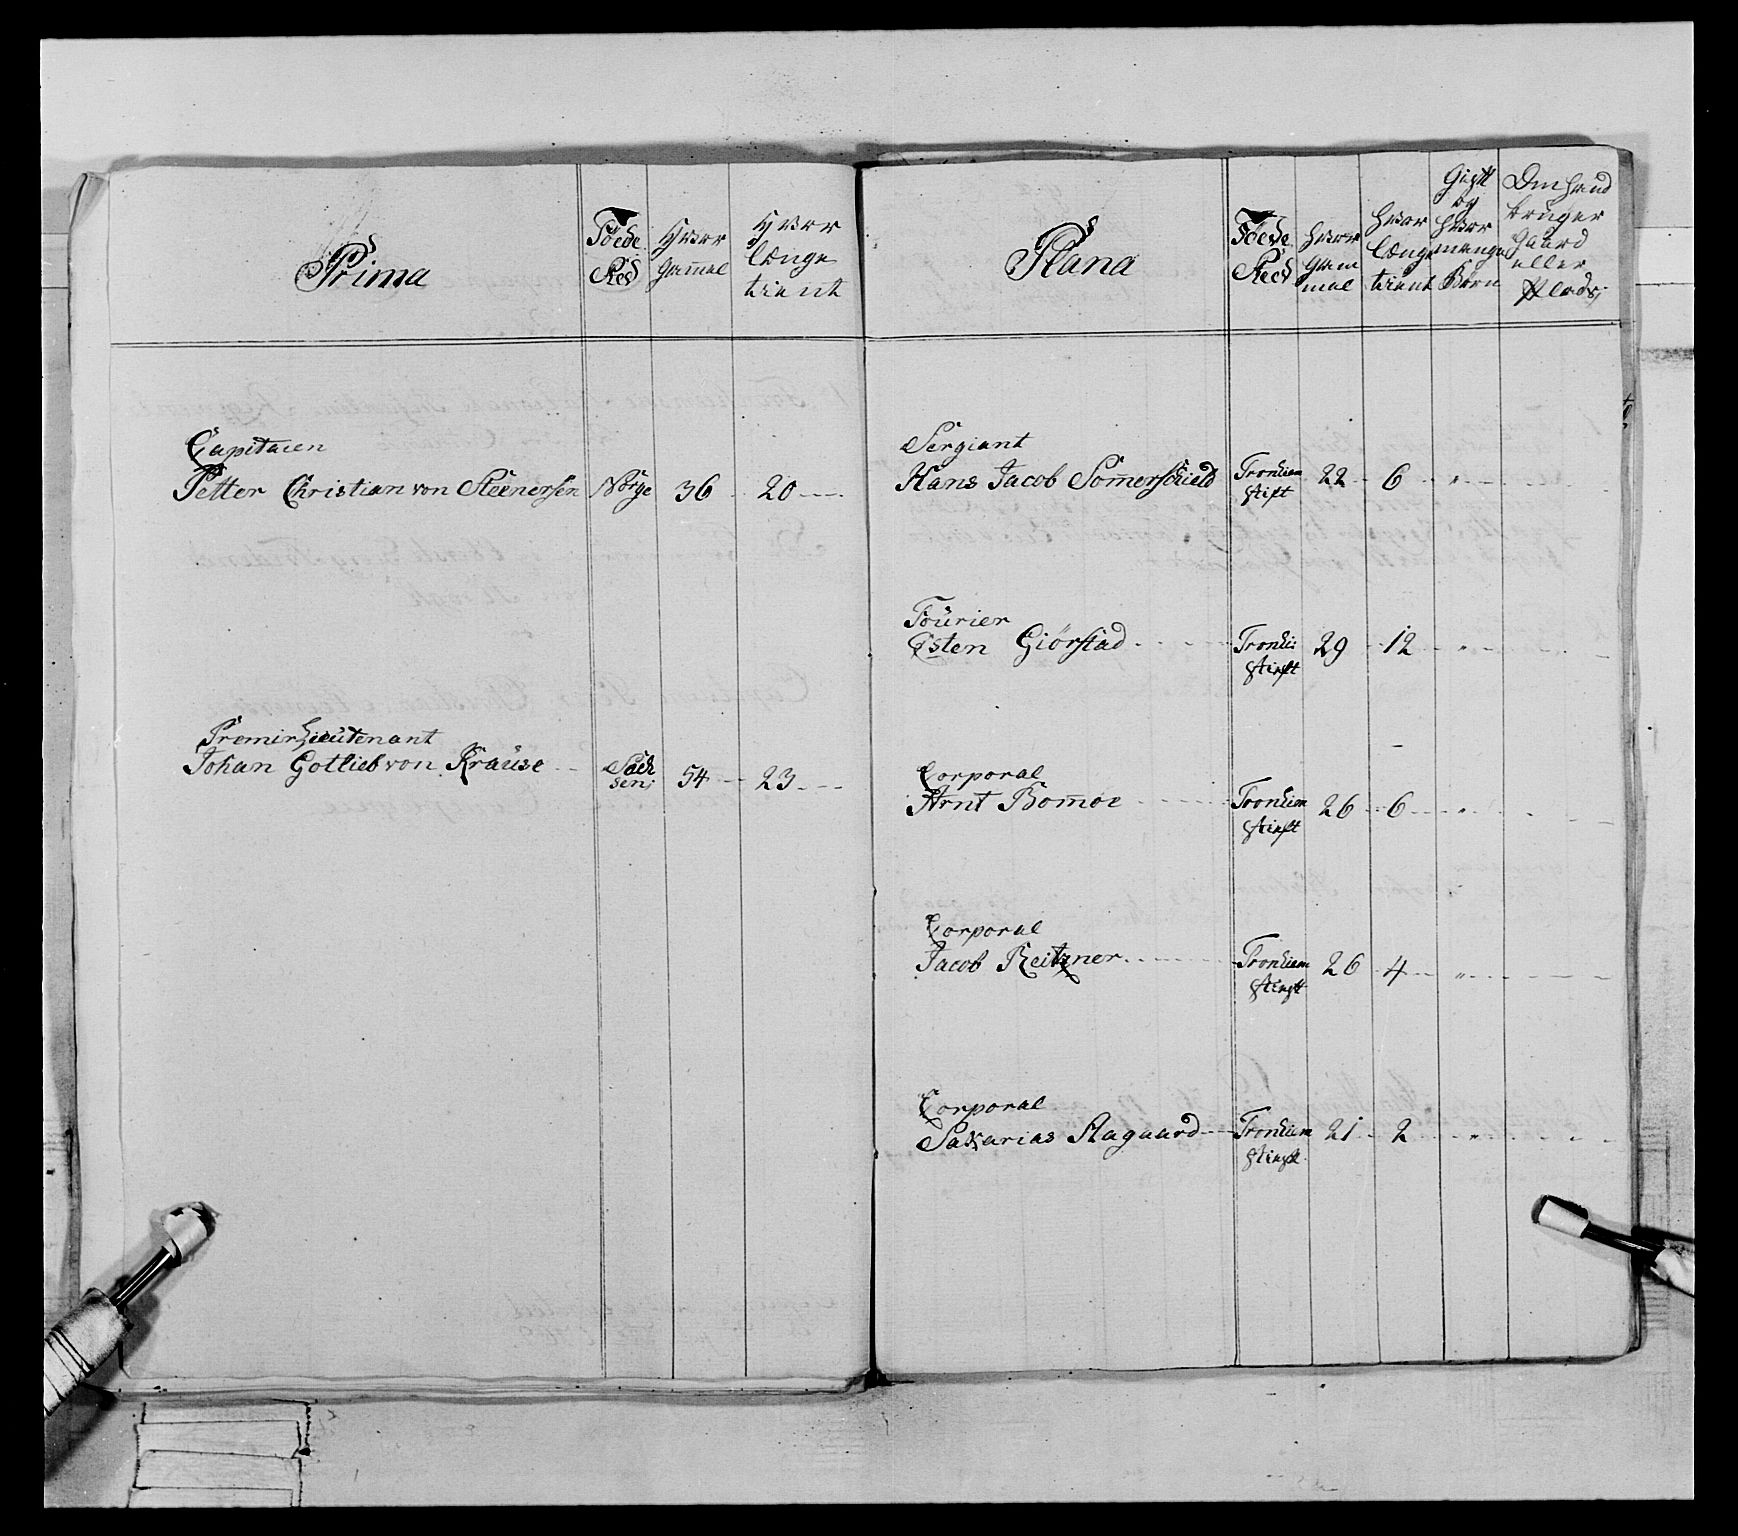 Prima
Föede
Sted
Hvor
Gam̄mel
Hvor
længe
tient
Capitaien
Petter Christian von Steenersen Norge 36 20
Premir Lieutenant
Johan Gottlieb von Krause Sach
sen; 54 23
Plana
Föede
Sted
Hvor
Gam
mel
Hvor
længe
tient
Gift
og
Hvor
mange
Börn
Om hand
bruger
Gaard
eller
Plads;
Sergiant
Hans Jacob Som̄erschield Tronhiem
stift 22 6 "
Fourier
Esten Giörstad Tronhi:
stift 29 12 "
Corporal
Arnt Bom̄oe Tronhiem
stift 26 6 "
Corporal
Jacob Reitzner Tronhiem
stift 26 4 "
Corporal
Sakarias Aagaard Tronhiem
stift 21 2 "